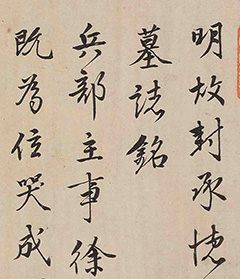 明故封承德
墓誌銘
兵部主事徐
既為位哭成